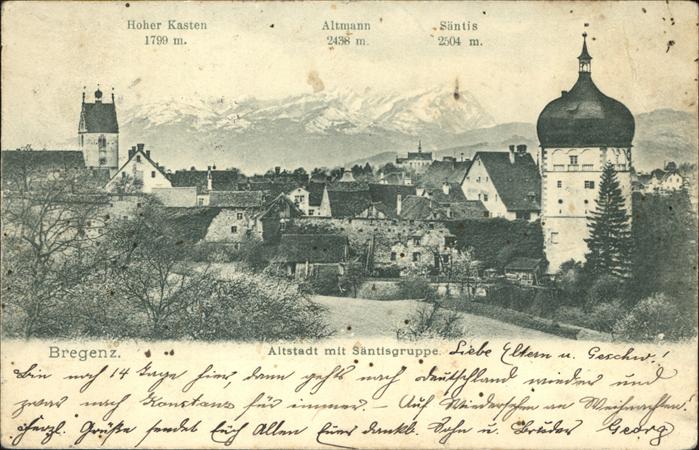 Hoher Kasten
1799 m.
Altmann
2438 m.
Säntis
2504 m.
Bregenz.
Altstadt mit Säntisgruppe.
Liebe Eltern u. Geschw.!
Bin noch 14 Tage hier, dann gehts nach Deutschland wieder und
zwar nach Konstanz für immer. — Auf Wiedersehn an Weihnachten!
Herzl. Grüße sendet Euch Allen Euer dankb. Sohn u. Bruder Georg